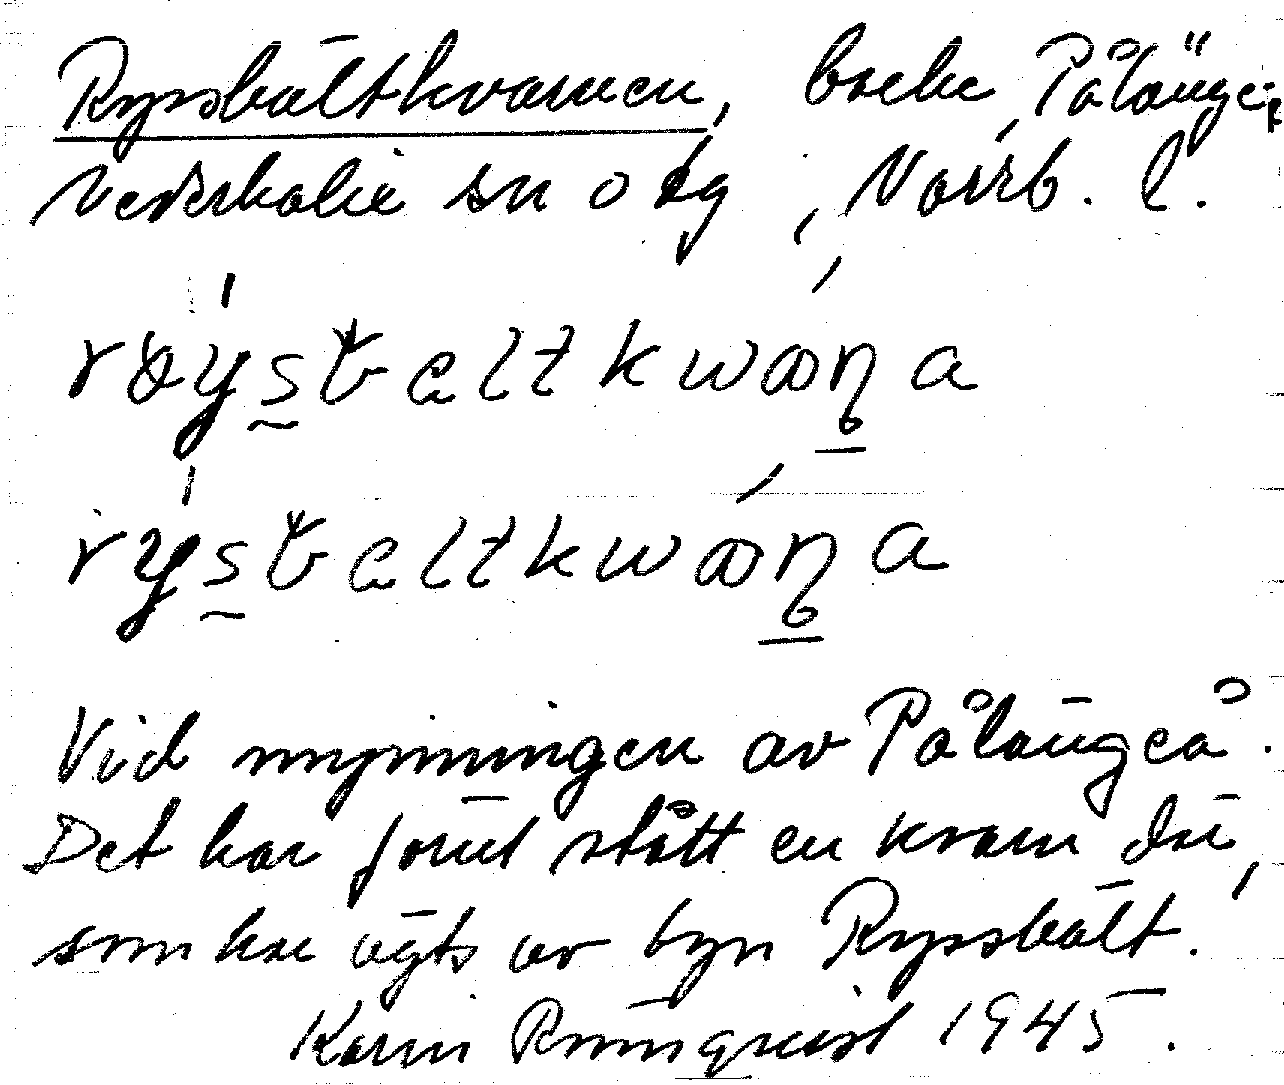 Ryssbältkvarnen, backe, Pålänge,
Nederkalix sn o tg, Norrb. l.
röystbæltkwaṇa
rystbæltkwaṇa
Vid mynningen av Pålängeå.
Det har förut stått en kvarn där,
som har ägts av byn Ryssbält.
Karin Rönnqvist 1945.